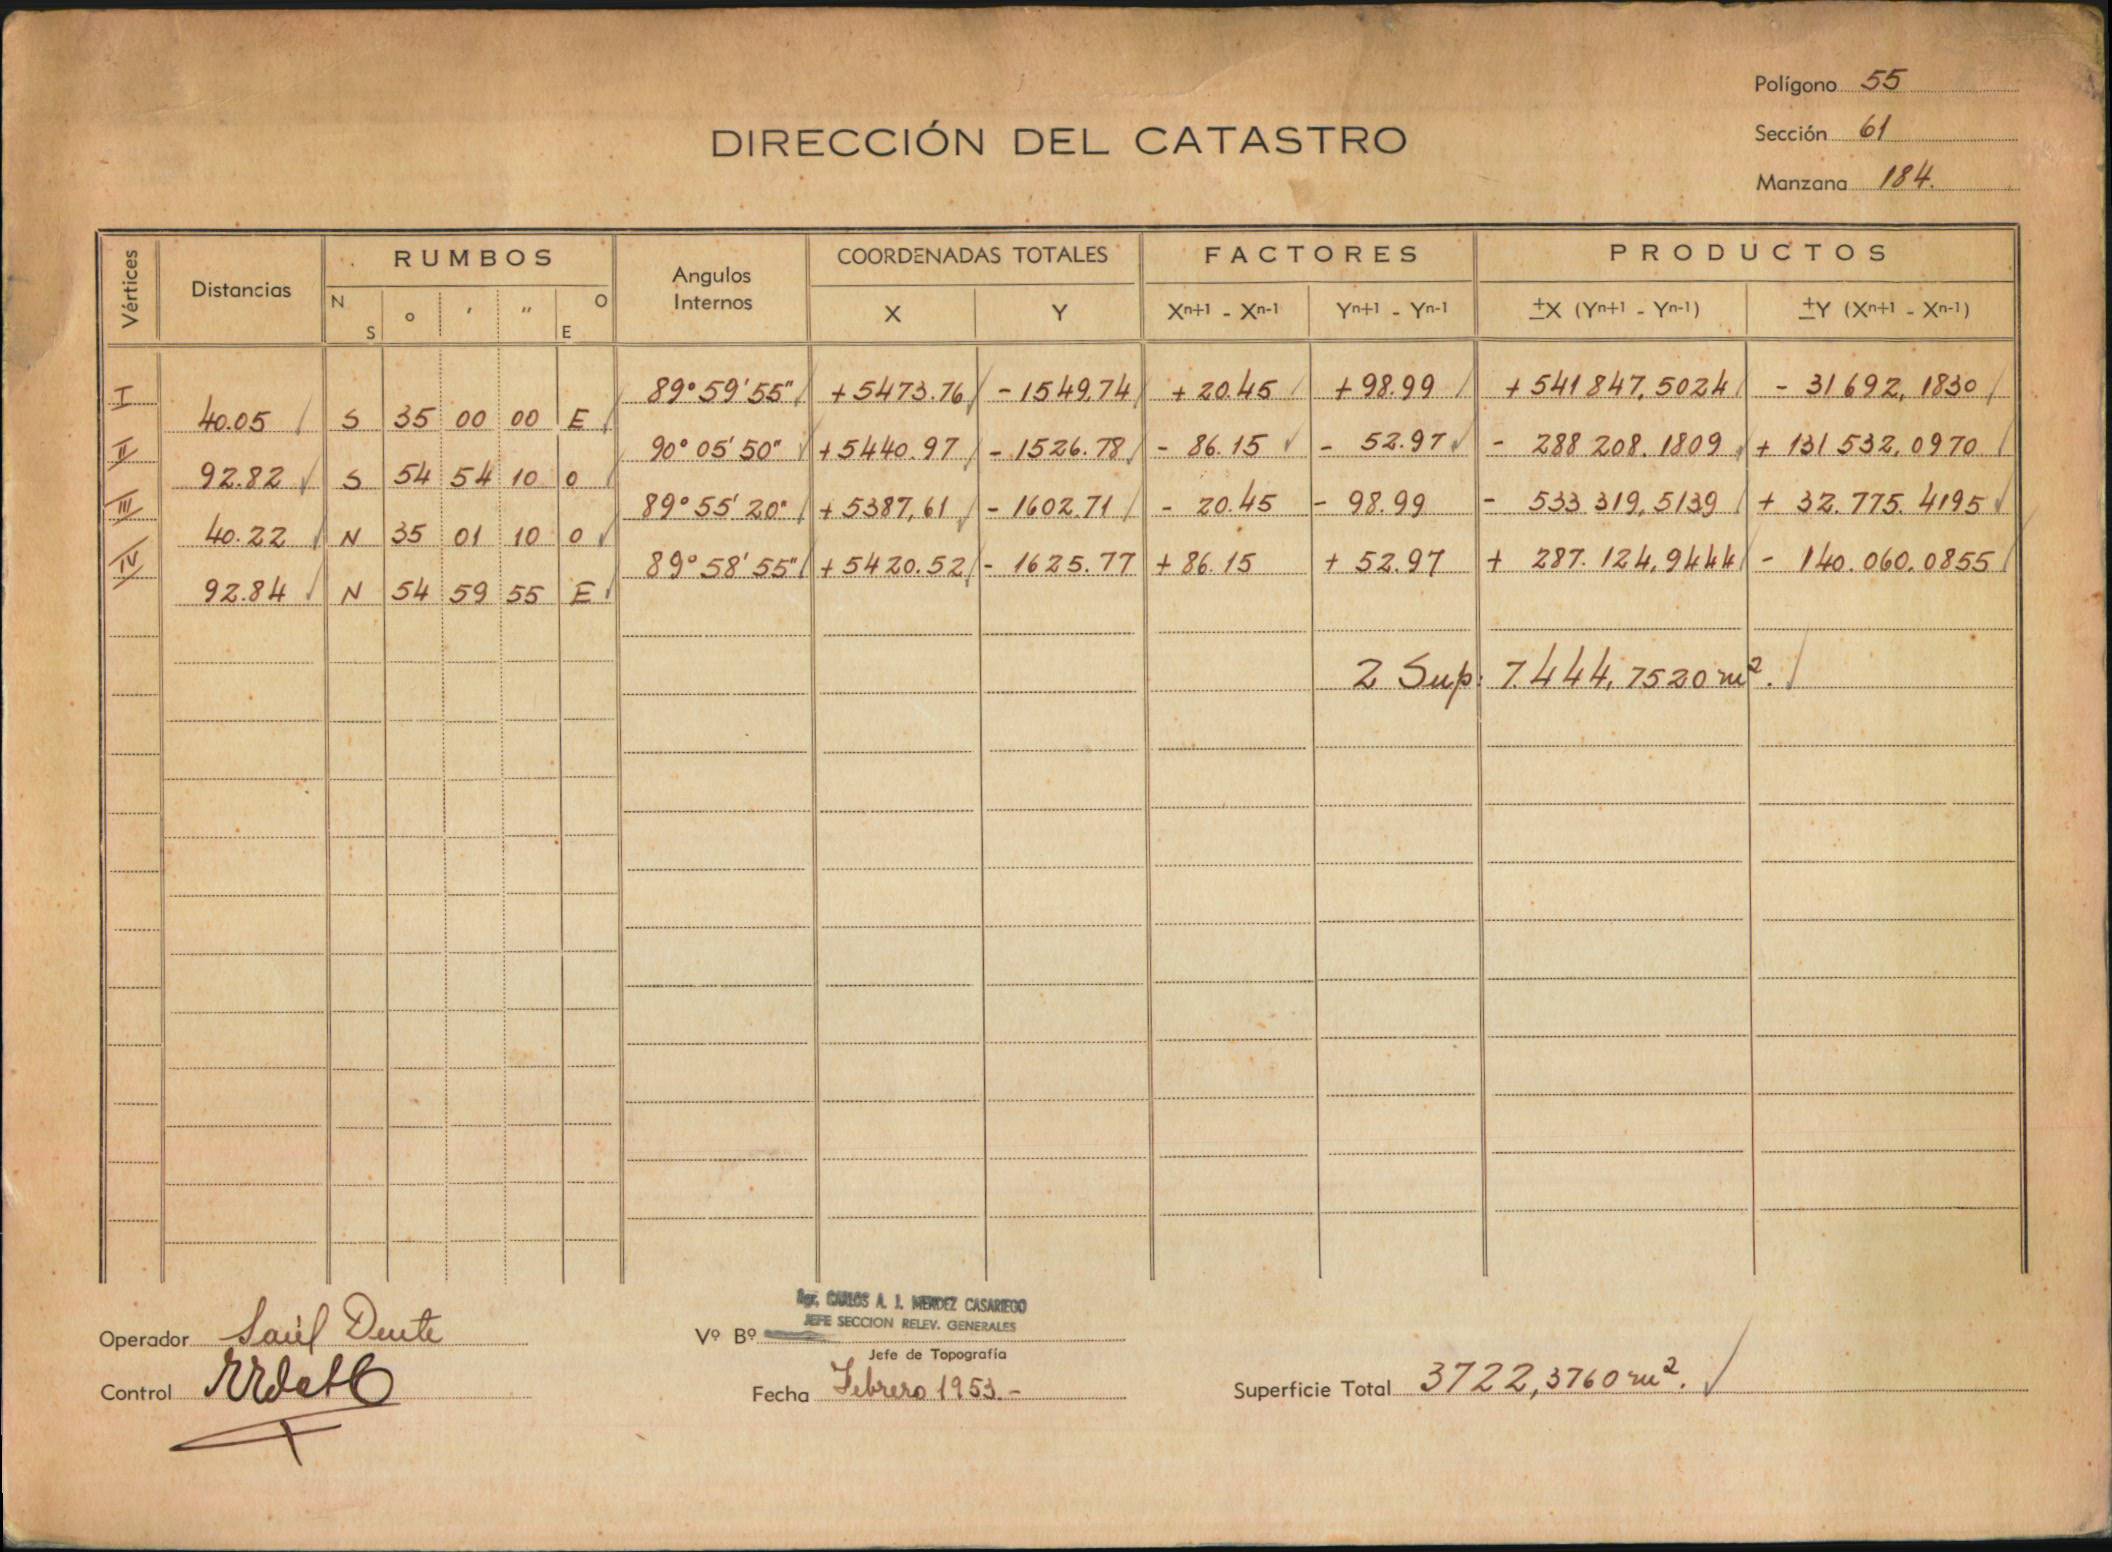 Polígono 55
Sección 61
Manzana 184.
DIRECCIÓN DEL CATASTRO
Vértices Distancias RUMBOS Angulos Internos COORDENADAS TOTALES FACTORES PRODUCTOS
N S ° ′ ″ O E X Y Xn+1 - Xn-1 Yn+1 - Yn-1 ±X (Yn+1 - Yn-1) ±Y (Xn+1 - Xn-1)
I 89° 59' 55" +5473.76 -1549,74 +20.45 +98.99 +541847,5024 - 31692,1830
40.05 S 35 00 00 E
II 90° 05' 50" +5440.97 -1526.78 - 86.15 - 52.97 - 288208.1809 +131532,0970
92.82 S 54 54 10 O
III 89° 55' 20" +5387,61 -1602.71 - 20.45 - 98.99 - 533319,5139 + 32.775.4195
40.22 N 35 01 10 O
IV 89° 58' 55" +5420.52 - 1625.77 +86.15 + 52.97 + 287.124,9444 - 140.060.0855
92.84 N 54 59 55 E
2 Sup: 7.444,7520 m².
Operador Saúl Dente
Control
Vº Bº Agr. CARLOS A. J. MENDEZ CASARIEGO
JEFE SECCION RELEV. GENERALES
Jefe de Topografía
Fecha Febrero 1953.-
Superficie Total 3722,3760 m².